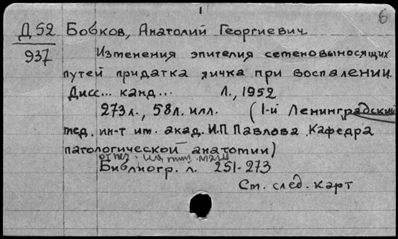 6
Д52 Бобков, Анатолий Георгиевич
937 Изменения эпителия семеновыносящих
путей придатка яичка при воспалении.
Дисс... канд... Л., 1952
273 л., 58 л. илл. (1-й Ленинградский
мед. ин-т им. акад. И.П Павлова. Кафедра
патологической анатомии)
Библиогр. л. 251-273
См. след. карт